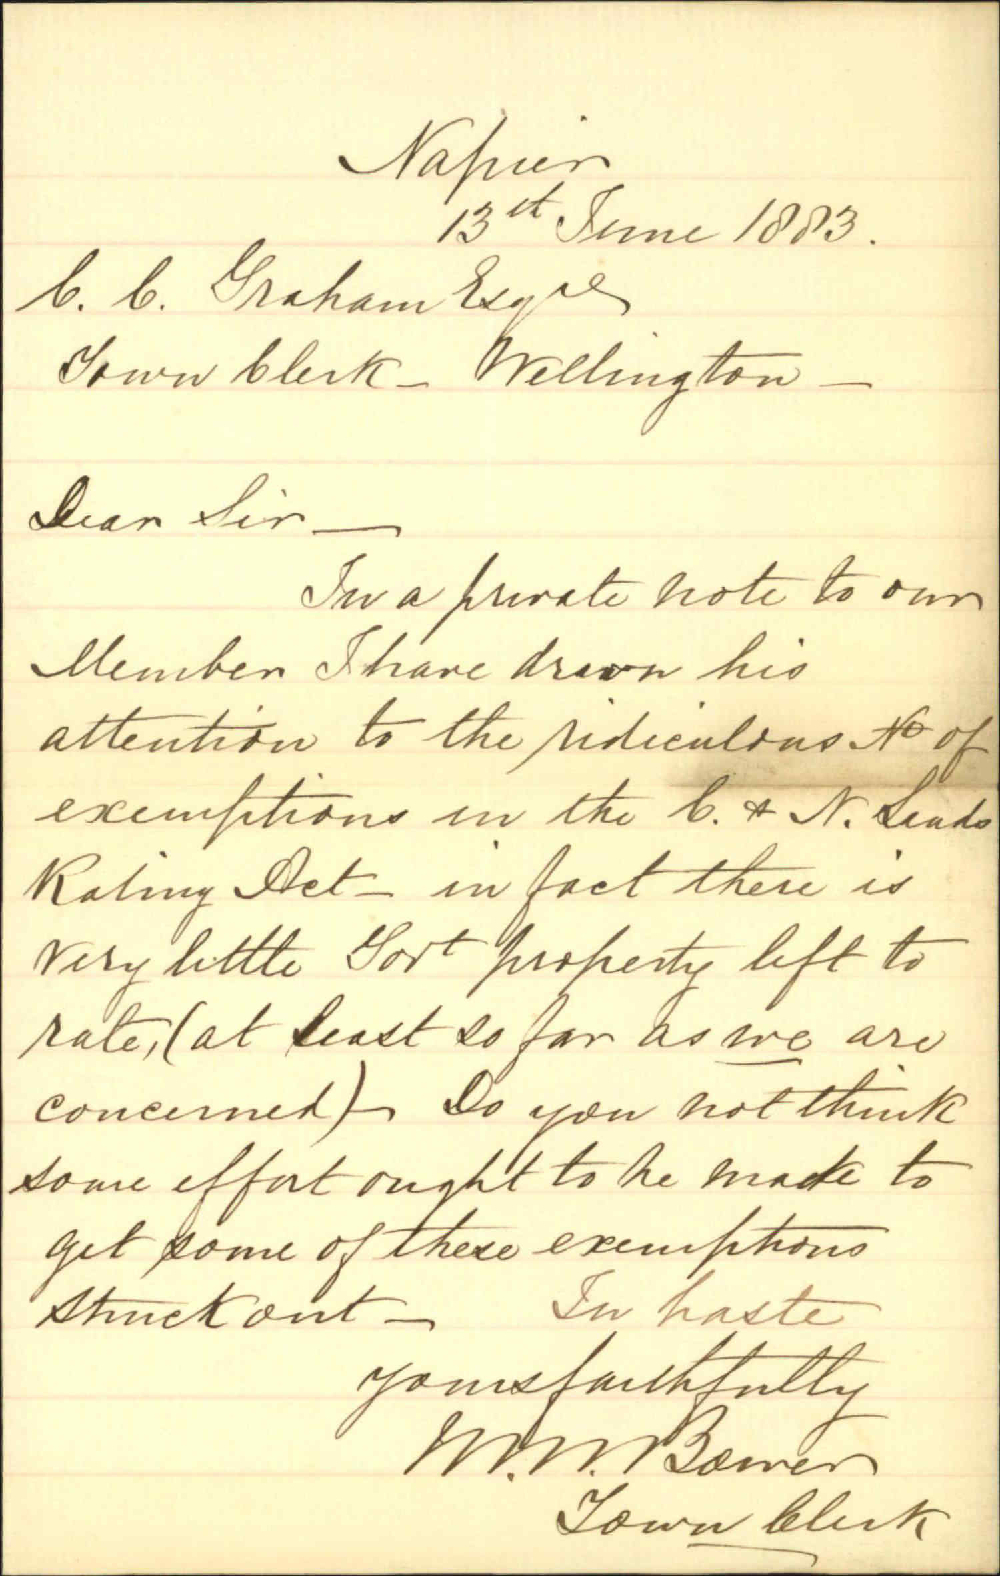 Napier
13th June 1883.
C. C. Graham Esqre
Town Clerk - Wellington -
Dear Sir -
In a private note to our
Member I have drawn his
attention to the ridiculous No of
exemptions in the C. & N. Lands
Rating Act - in fact there is
very little Govt property left to
rate, (at least so far as we are
concerned) - Do you not think
some effort ought to be made to
get some of these exemptions
struck out - In haste
yours faithfully
M. W. Bower
Town Clerk